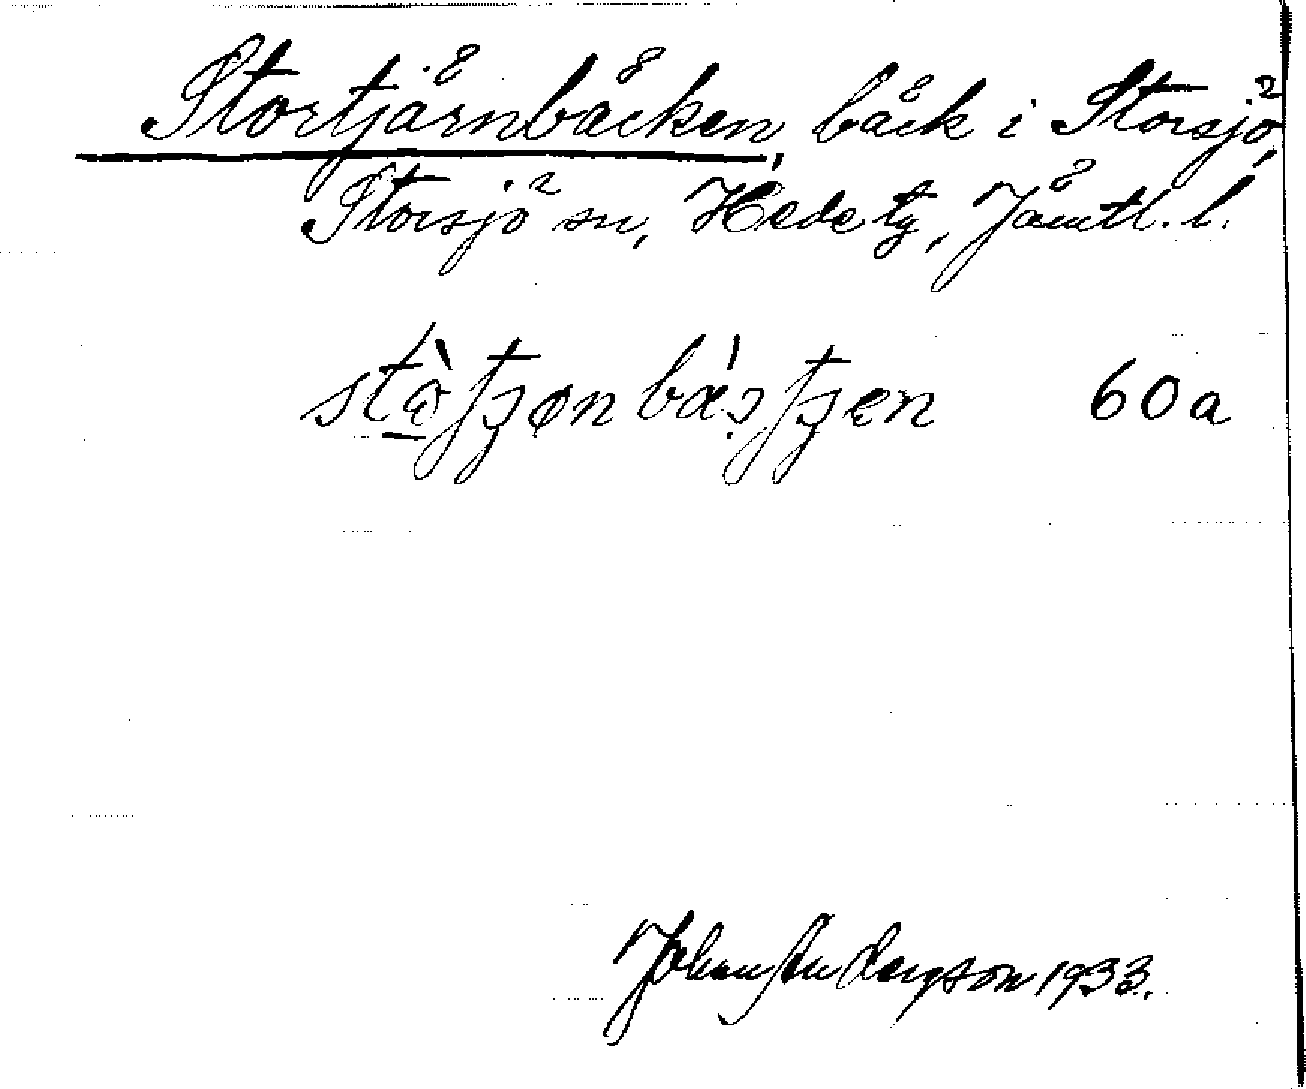 Stortjärnbäcken, bäck i Storsjö,
Storsjö sn, Hede tg, Jämtl. l.
60a
Johan Andersson 1933.